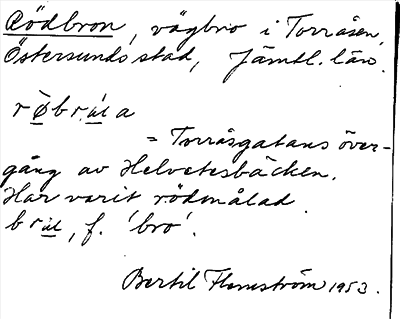 Rödbron, vägbro i Torråsen,
Östersunds stad, Jämtl. län.
= Torråsgatans över-
gång av Helvetesbäcken.
Har varit rödmålad.
f. 'bro'.
Bertil Flemström 1953.